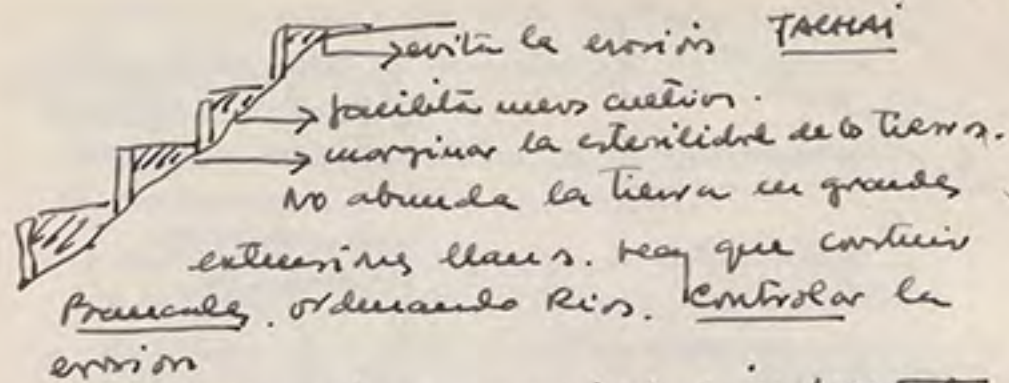 evita la erosión TACHAI
facilita nuevos cultivos.
marginar la esterilidad de las tierras.
No abunda la tierra en grandes
extensiones llanas. Hay que construir
Bancales. ordenando Ríos. Controlar la
erosión